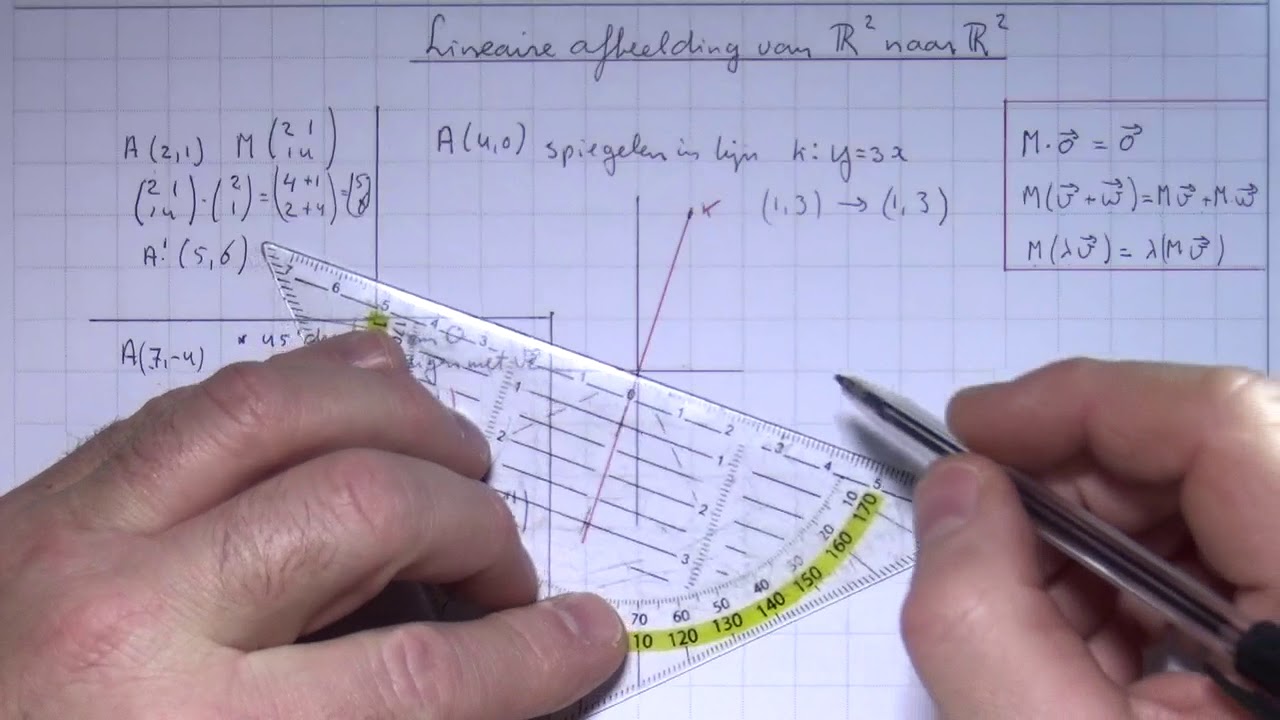 Lineaire afbeelding van ℝ² naar ℝ²
A(2,1) M (2 1
1 4)
(2 1
1 4) · (2
1) = (4+1
2+4) = (5
6)
A' (5,6)
A(7,-4) * 45°
A(4,0) spiegelen in lijn k: y=3x
(1,3) → (1,3)
k
M·o⃗ = o⃗
M(v⃗ + w⃗) = Mv⃗ + M·w⃗
M(λv⃗) = λ(Mv⃗)
7 6 5 4 3 1 0 1 2 3 4 5
1 2
1 2 3
70 60 50 40 30 20 10
10 120 130 140 150 160 170